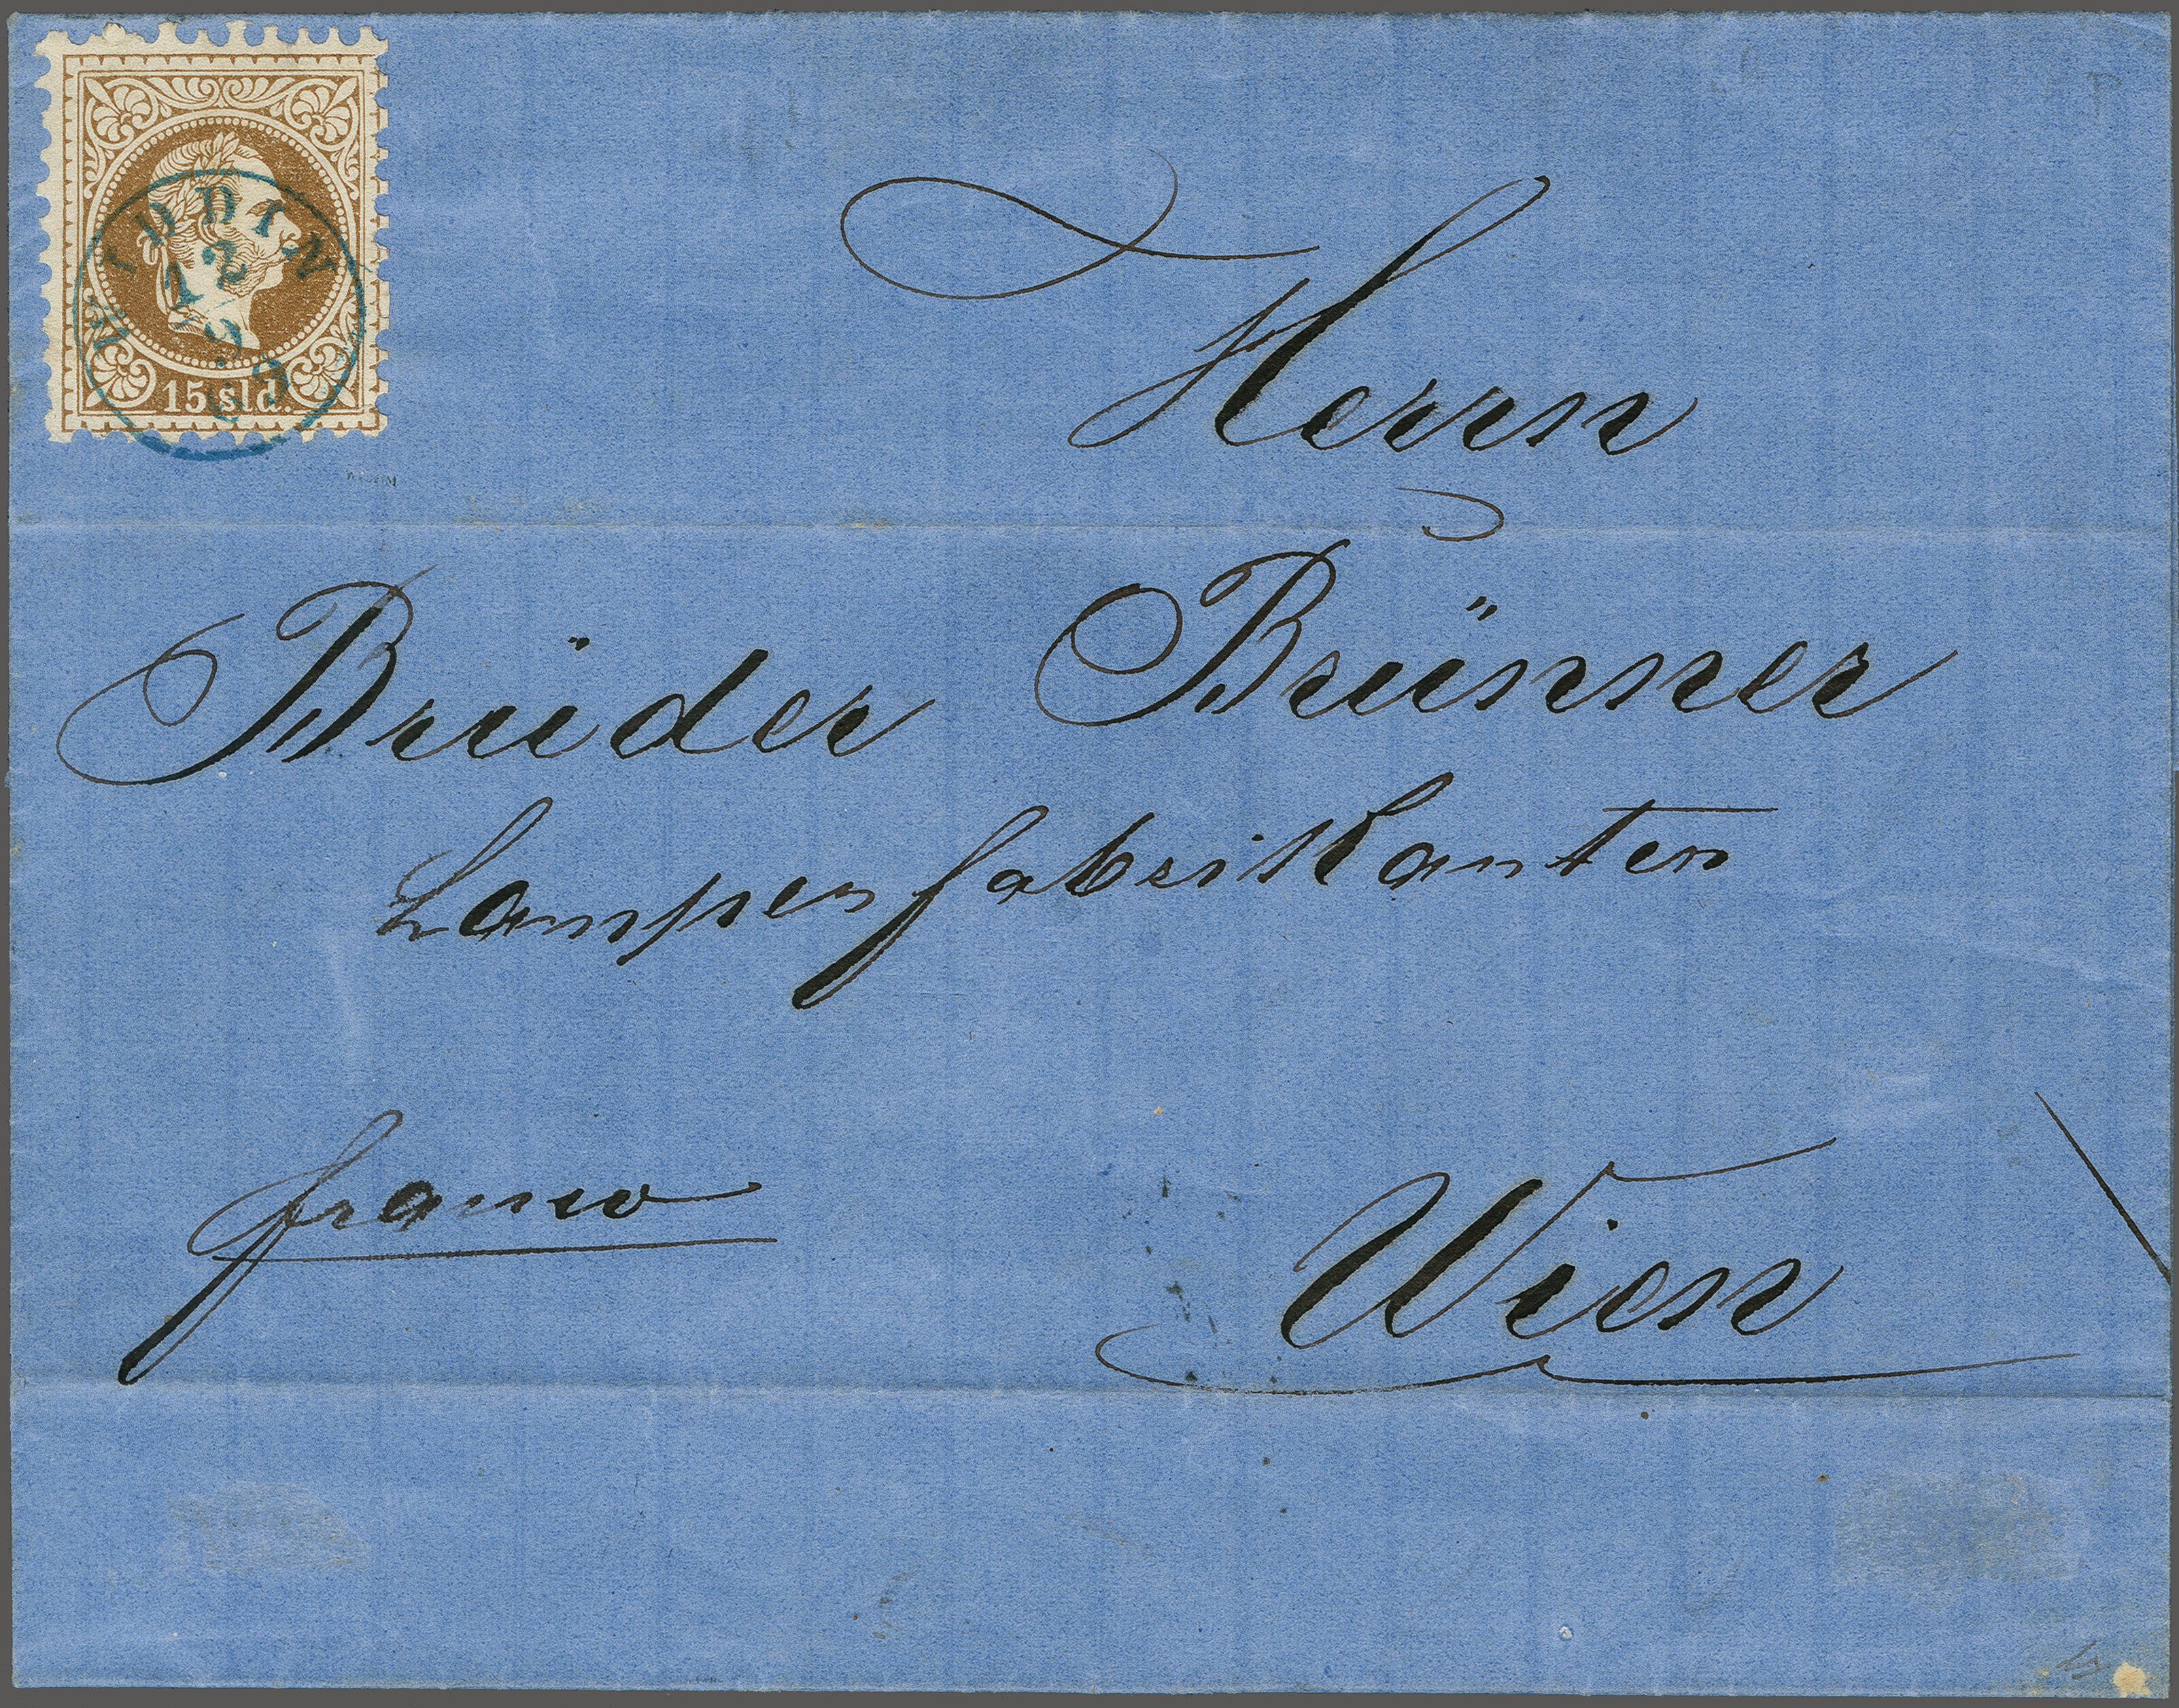 WIDDIN
12
9
69
15 sld.
Herrn
Brüder Brünner
Lampenfabrikanten
franco
Wien